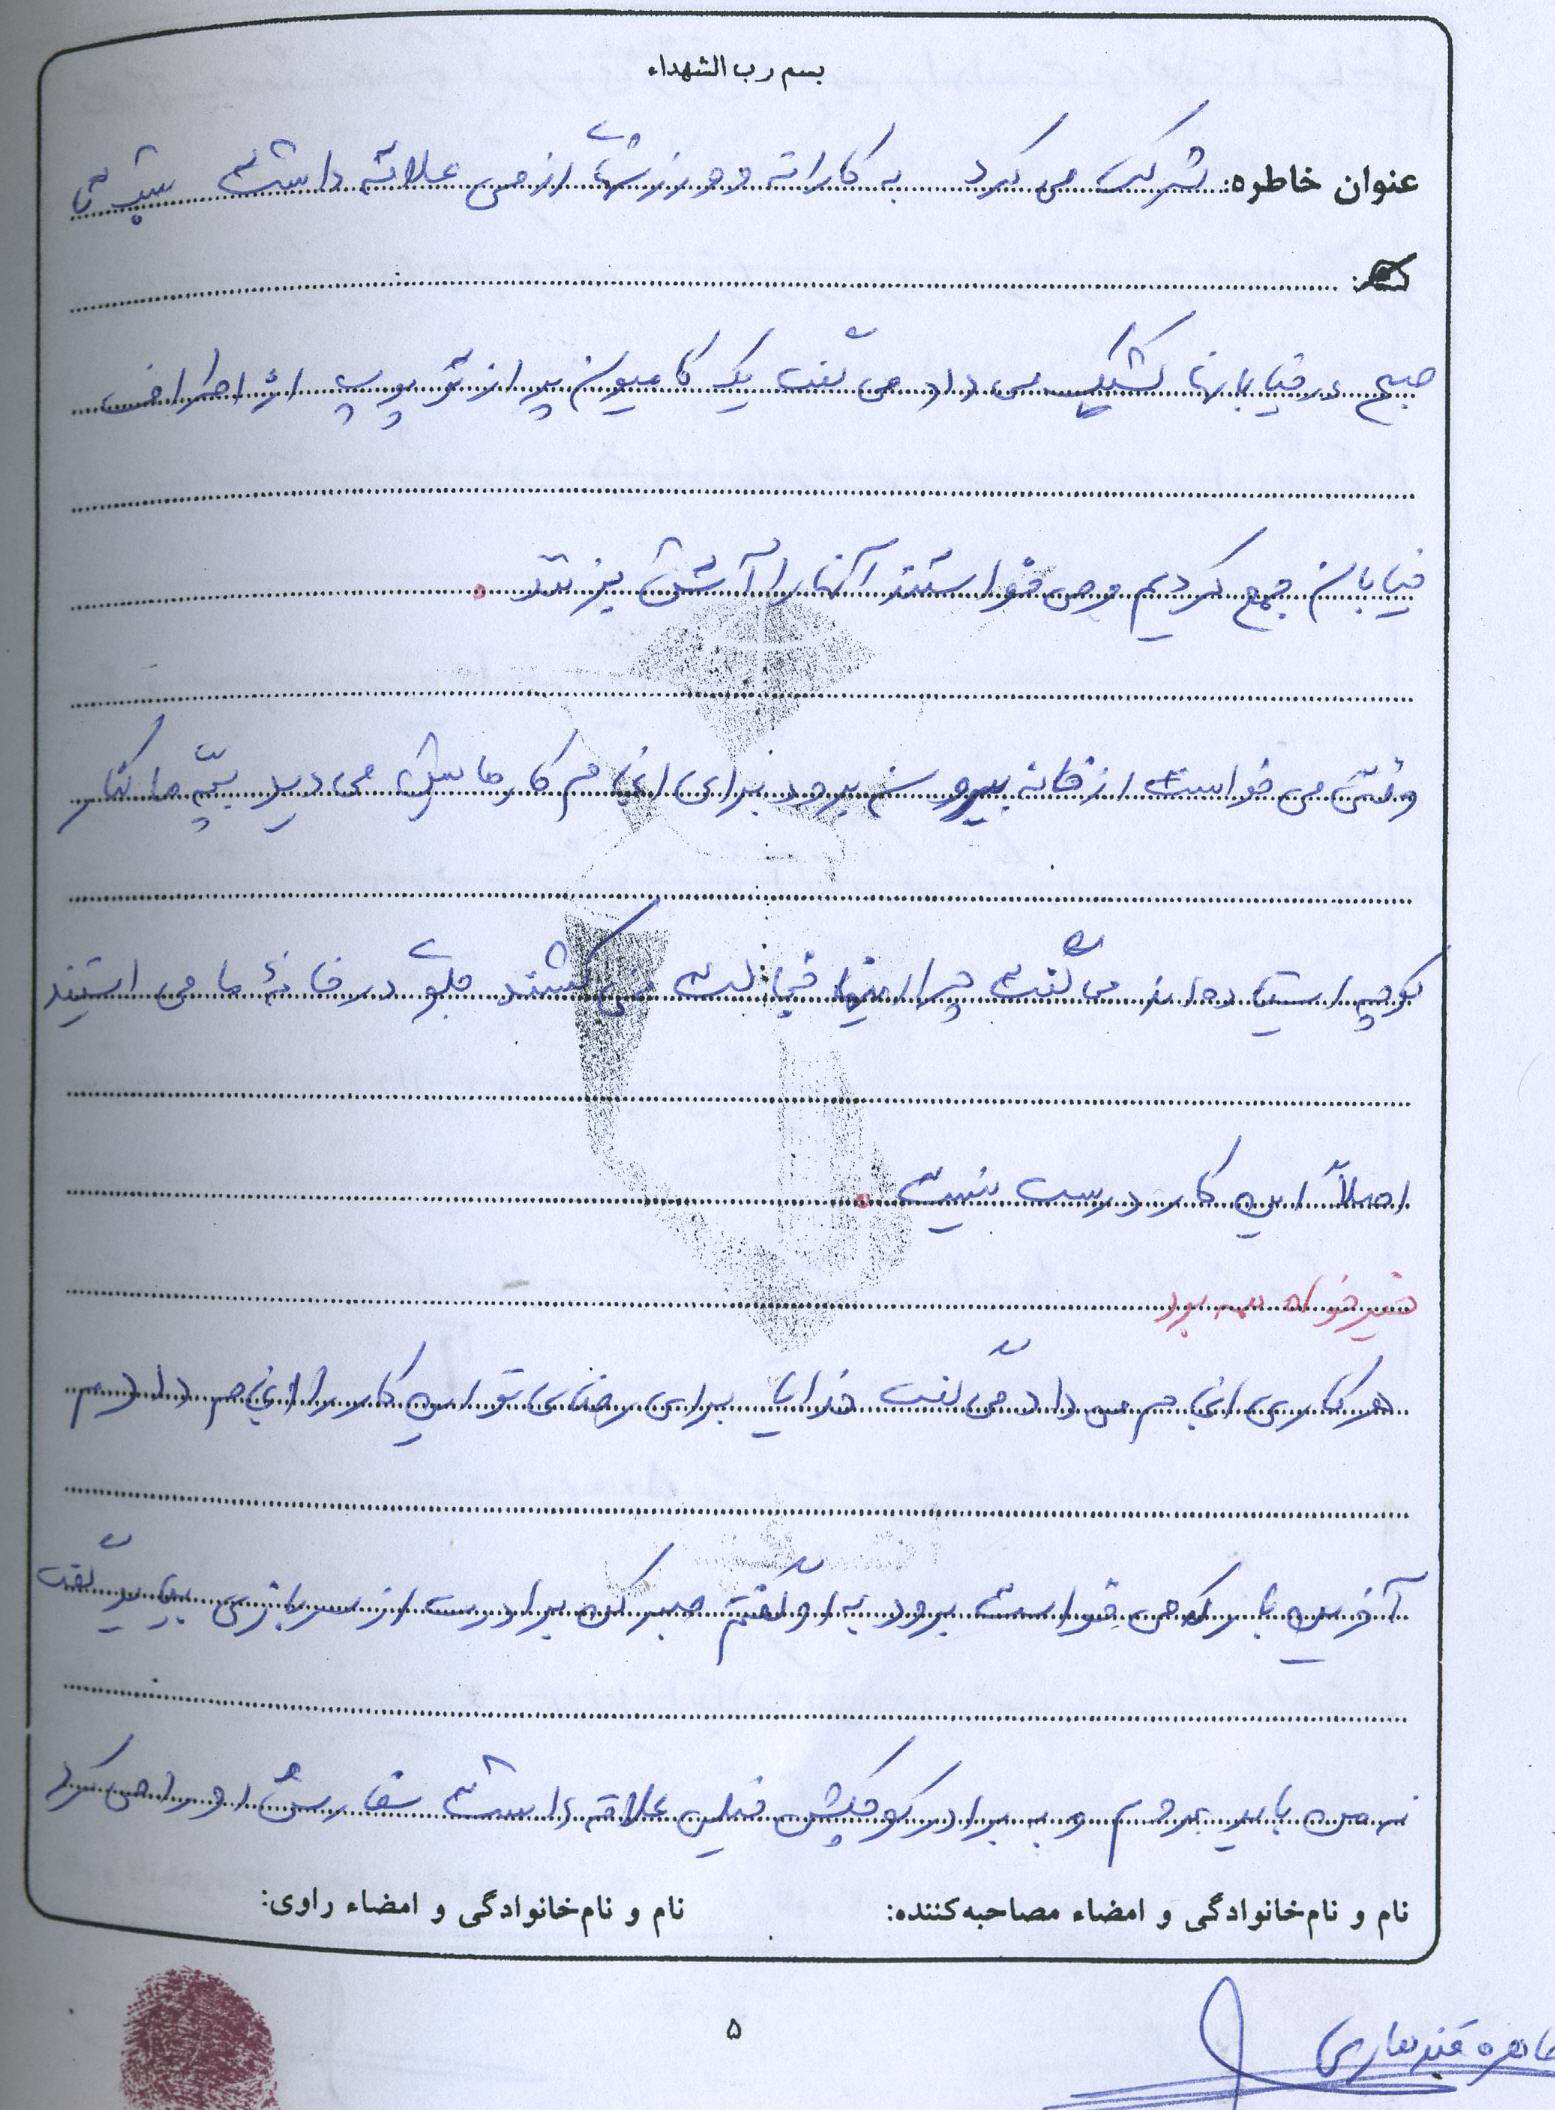 بسم رب الشهداء
عنوان خاطره: شرکت می کرد به کاراته و ورزشهای رزمی علاقه داشت شب تا
صبح در خیابانها کشیک می داد می گفت یک کامیون پر از توپ اژ اطراف
خیابان جمع کردیم و می خواستند آنها را آتش بزنند.
وقتی می خواست از خانه بیرون برود برای انجام کارهایش می دید بچّه ها کنار
کوچه ایستاده اند می گفت چرا اینها خجالت نمی کشند جلوی در خانهٔ ما می ایستند
اصلاً این کار درست نیست.
خیرخواه همه بود
هر کاری انجام می داد می گفت خدایا برای رضای تو این کار را انجام دادم
آخرین بار که می خواست برود به او گفتم صبر کن برادرت از سربازی بیاید گفت
نه من باید بروم و به برادر کوچکش خیلی علاقه داشت سفارش او را می کرد
نام و نام‌خانوادگی و امضاء مصاحبه‌کننده: نام و نام‌خانوادگی و امضاء راوی:
۵